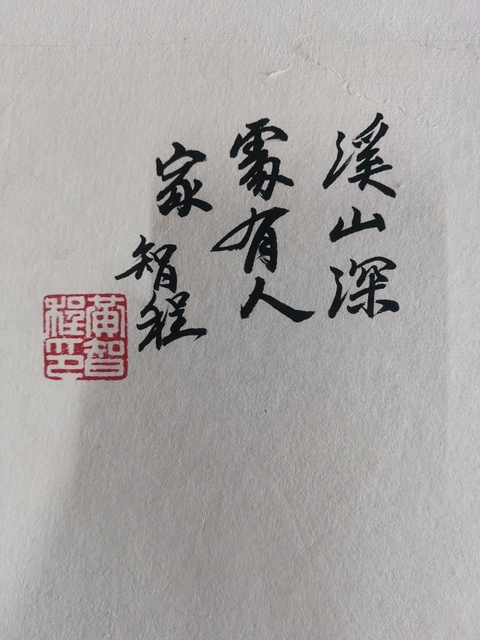 溪山深
處有人
家
智程
黃智
程印